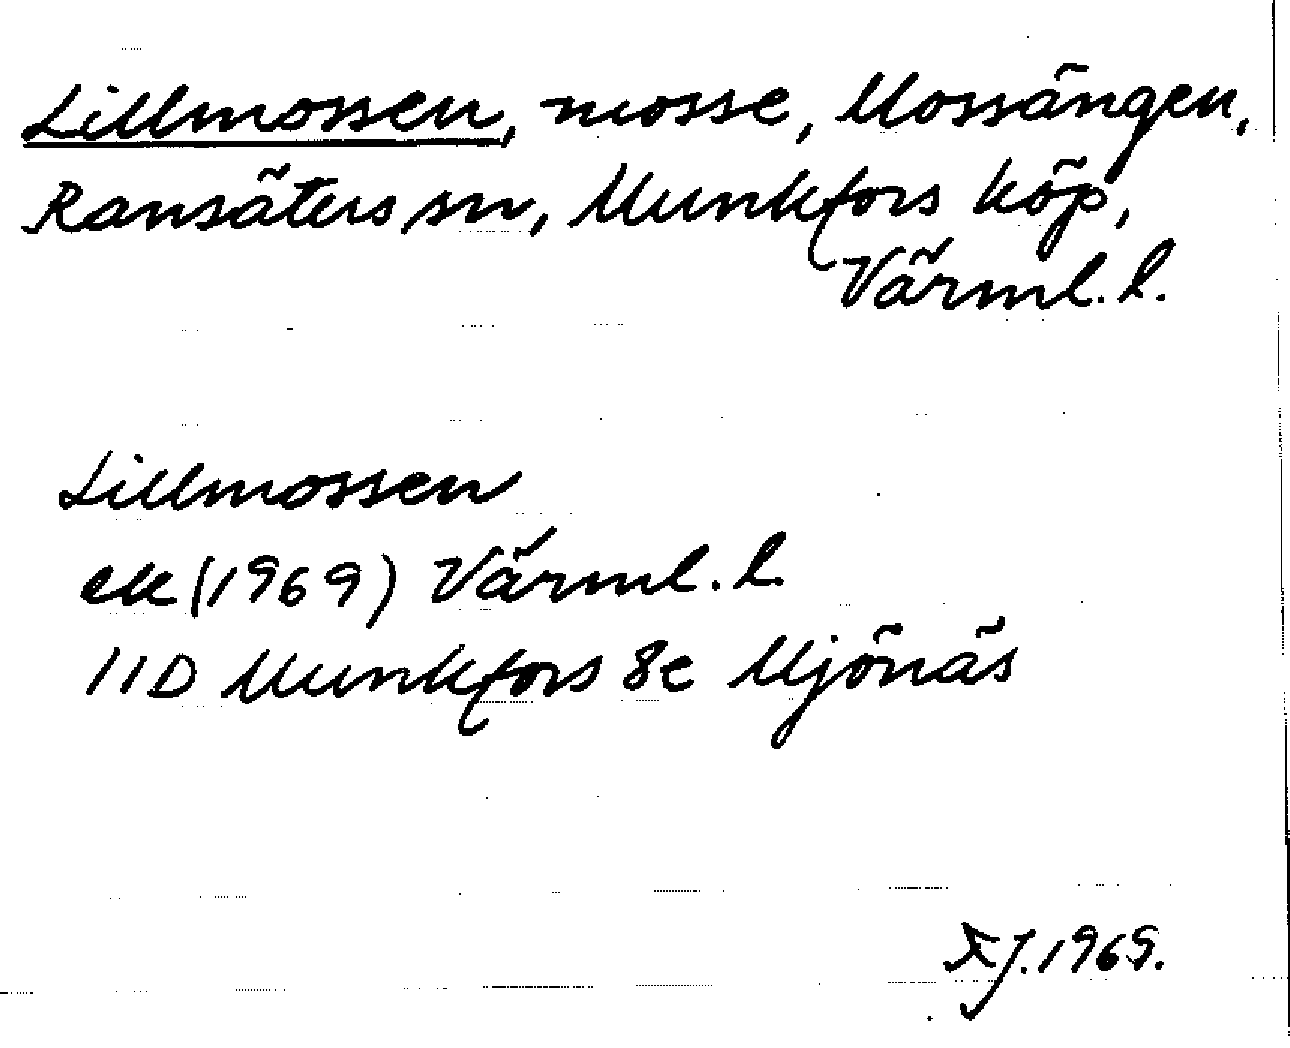 Lillmossen, mosse, Mossängen,
Ransäters sn, Munkfors köp,
Värml. l.
Lillmossen
ek (1969) Värml. l.
11D Munkfors 8e Mjönäs
1969.